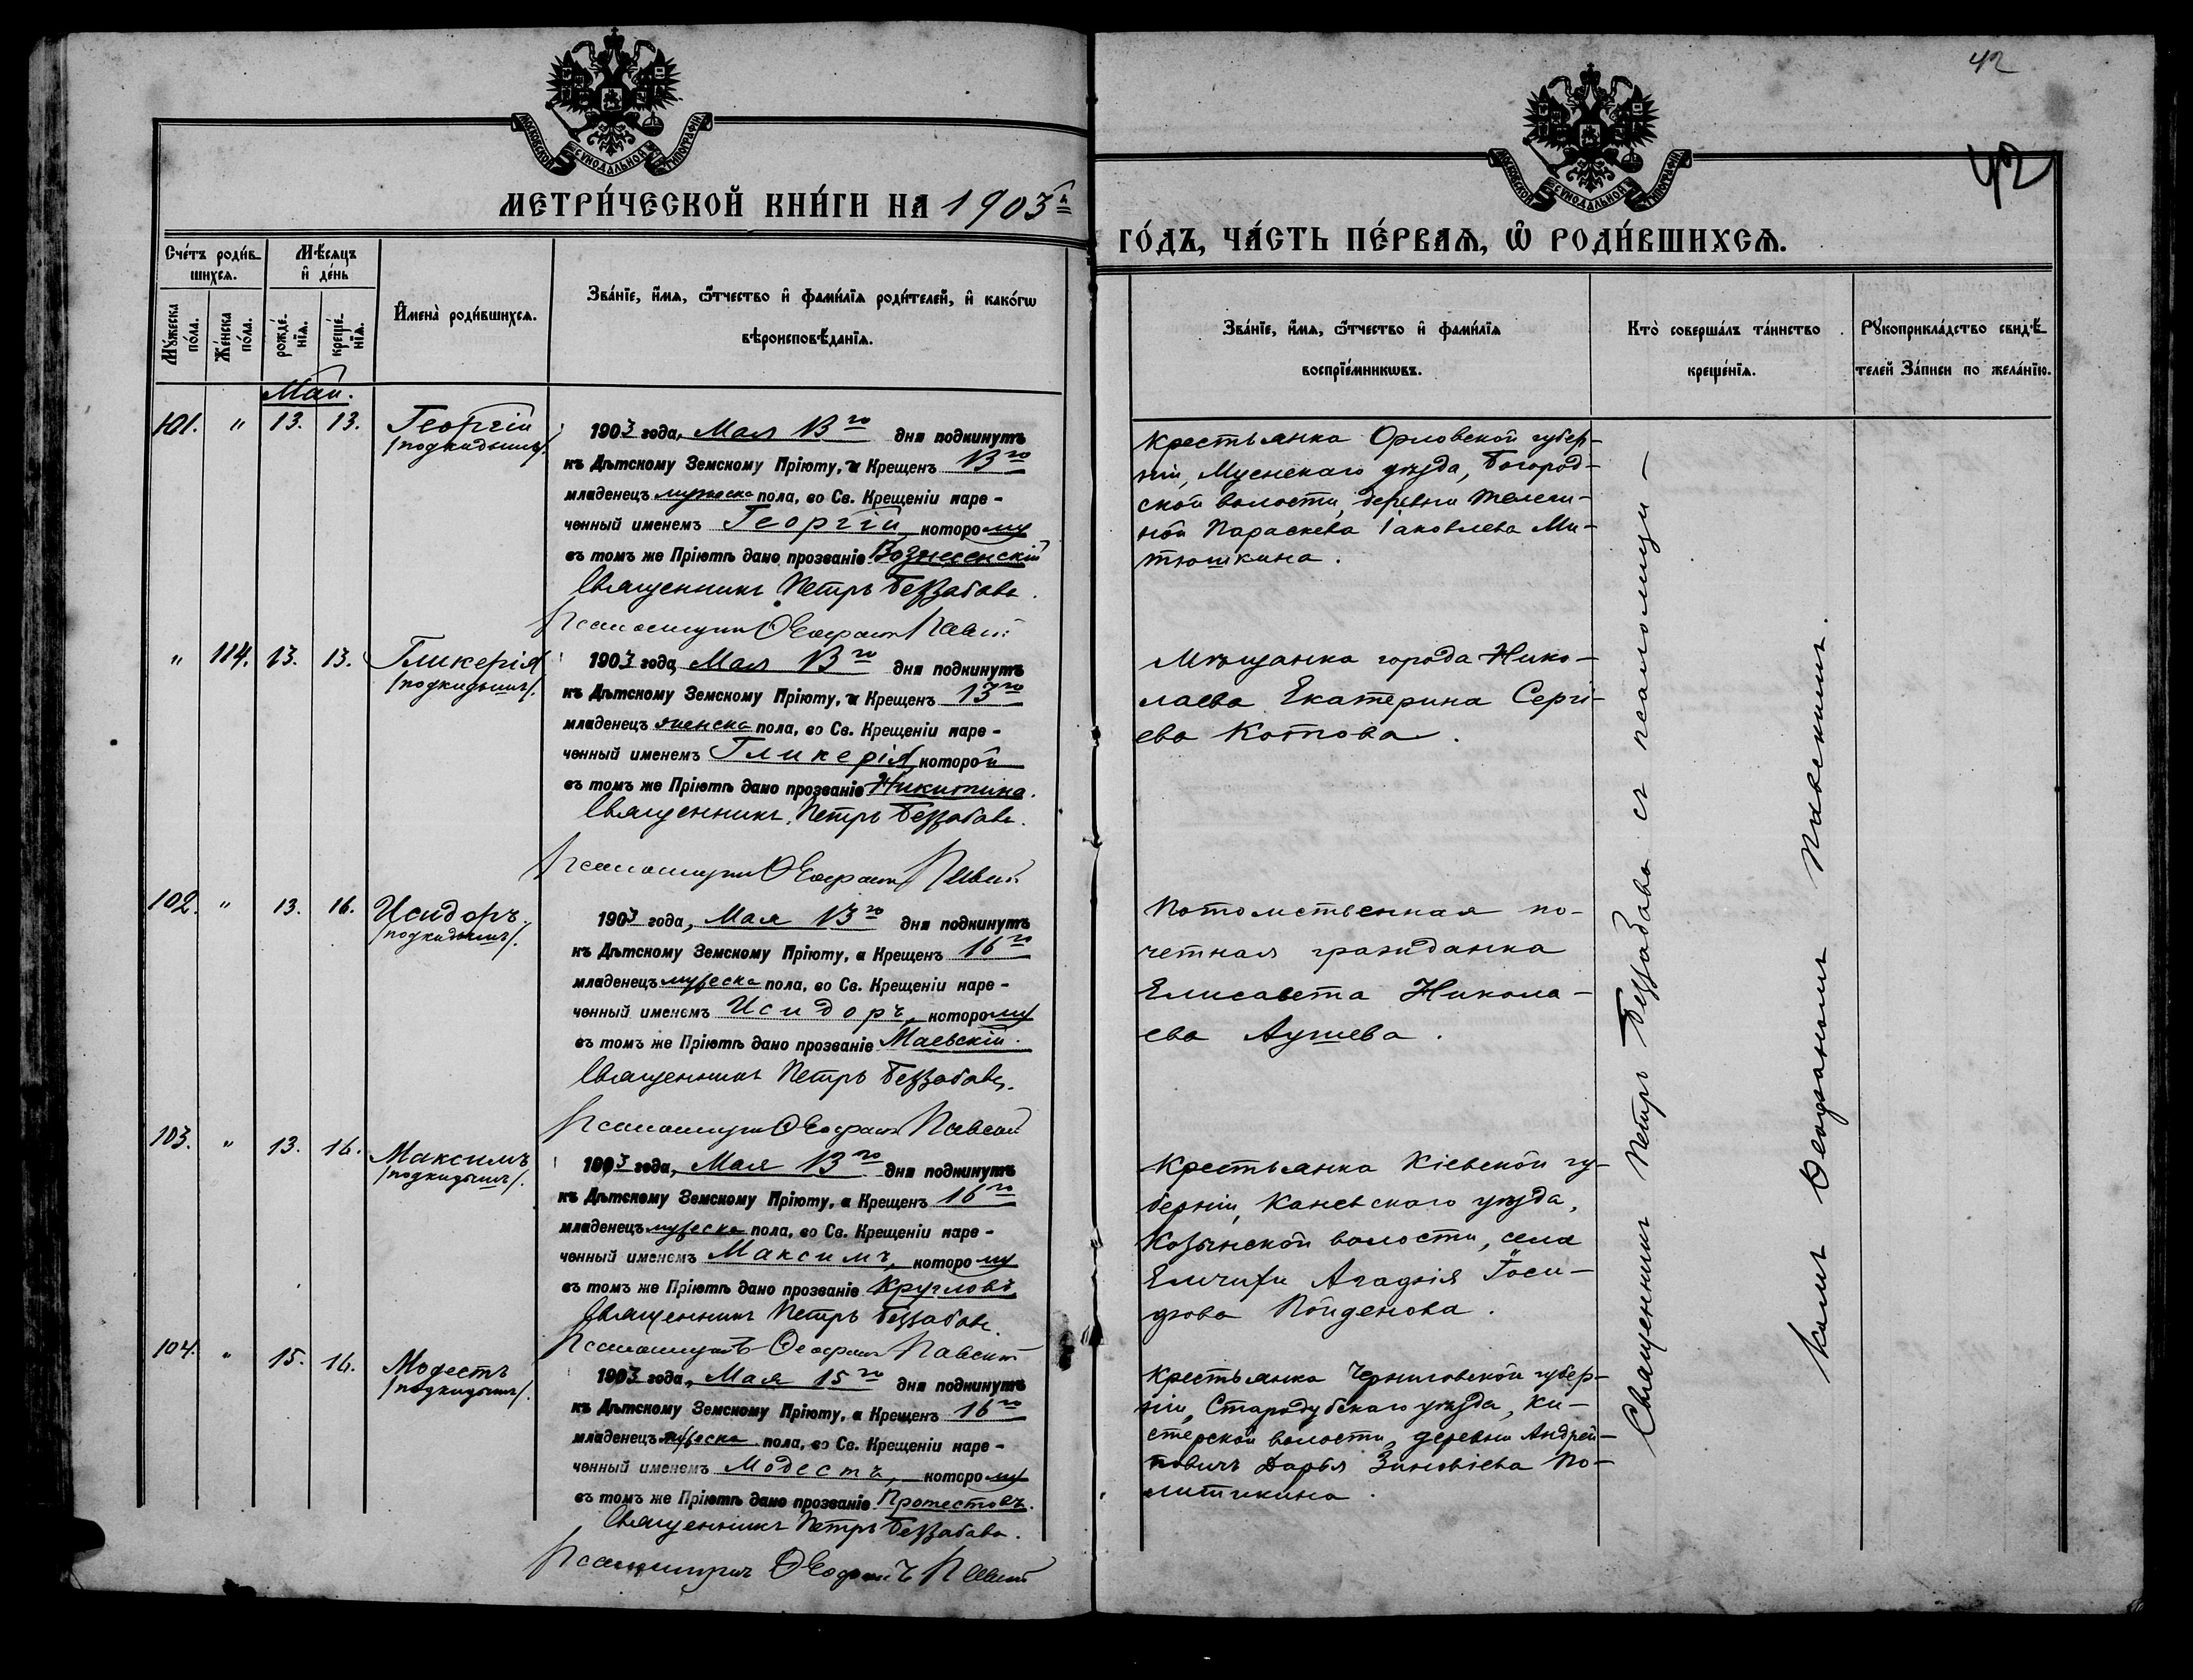 42
42
МОСКОВСКОЙ СѴНОДАЛЬНОЙ ТИПОГРАФІИ
МОСКОВСКОЙ СѴНОДАЛЬНОЙ ТИПОГРАФІИ
МЕТРИ́ЧЕСКОЙ КНИ́ГИ НА 1903й
ГО́ДЪ, ЧА́СТЬ ПЕ́РВАѦ, Ѡ РОДИ́ВШИХСѦ.
Сче́тъ роди́в-
шихсѧ.
Мꙋ́жеска
по́ла.
Же́нска
по́ла.
Мѣ́сѧцъ
и҆ де́нь
рожде́-
нїѧ.
креще́-
нїѧ.
И҆мена̀ роди́вшихсѧ.
Зва́нїе, и҆́мѧ, ѻ҆́тчество и҆ фами́лїѧ роди́телей, и҆ како́гѡ
вѣроисповѣ́данїѧ.
Зва́нїе, и҆́мѧ, ѻ҆́тчество и҆ фами́лїѧ
воспрїе́мникѡвъ.
Кто̀ соверша́лъ та́инство
креще́нїѧ.
Рꙋкоприкла́дство свидѣ́-
телей За́писи по жела́нїю.
Май.
101. " 13. 13. Георгій
/подкидышъ/.
1903 года, Мая 13го дня подкинутъ
къ Дѣтскому Земскому Пріюту, а Крещенъ 13го
младенецъ мужеска пола, во Св. Крещеніи наре-
ченный именемъ Георгій, которому
въ томъ же Пріютѣ дано прозваніе Вознесенскій
Священникъ Петръ Беззабава.
Псаломщикъ Ѳеофанъ Павскій
Крестьянка Орловской губер-
ніи, Мценскаго уѣзда, Богород-
ской волости, деревни Телеги-
ной Параскева Іаковлева Ми-
тюшкина.
" 114. 13. 13. Гликерія
/подкидышъ/.
1903 года, Мая 13го дня подкинутъ
къ Дѣтскому Земскому Пріюту, а Крещенъ 13го
младенецъ женска пола, во Св. Крещеніи наре-
ченный именемъ Гликерія, которой
въ томъ же Пріютѣ дано прозваніе Никитина.
Священникъ Петръ Беззабава.
Псаломщикъ Ѳеофанъ Павскій
Мѣщанка города Нико-
лаева Екатерина Сергі-
ева Котова.
102. " 13. 16. Исидоръ
/подкидышъ/.
1903 года, Мая 13го дня подкинутъ
къ Дѣтскому Земскому Пріюту, а Крещенъ 16го
младенецъ мужеска пола, во Св. Крещеніи наре-
ченный именемъ Исидоръ, которому
въ томъ же Пріютѣ дано прозваніе Маевскій.
Священникъ Петръ Беззабава.
Псаломщикъ Ѳеофанъ Павскій
Потомственная по-
четная гражданка
Елисавета Никола-
ева Аушева.
103. " 13. 16. Максимъ
/подкидышъ/.
1903 года, Мая 13го дня подкинутъ
къ Дѣтскому Земскому Пріюту, а Крещенъ 16го
младенецъ мужеска пола, во Св. Крещеніи наре-
ченный именемъ Максимъ, которому
въ томъ же Пріютѣ дано прозваніе Кругловъ
Священникъ Петръ Беззабава.
Псаломщикъ Ѳеофанъ Павскій
Крестьянка Кіевской гу-
берніи, Каневскаго уѣзда,
Козынской волости, села
Емчихи Агафія Іоси-
фова
104. " 15. 16. Модестъ
/подкидышъ/.
1903 года, Мая 15го дня подкинутъ
къ Дѣтскому Земскому Пріюту, а Крещенъ 16го
младенецъ мужеска пола, во Св. Крещеніи наре-
ченный именемъ Модестъ, которому
въ томъ же Пріютѣ дано прозваніе Протестовъ.
Священникъ Петръ Беззабава.
Псаломщикъ Ѳеофанъ Павскій
Крестьянка Черниговской губер-
ніи, Стародубскаго уѣзда, Ки-
стерской волости, деревни Андрей-
ковичъ Дарья Зиновіева По-
литикина.
Священникъ Петръ Беззабава съ псаломщи-
комъ Ѳеофаномъ Павскимъ.